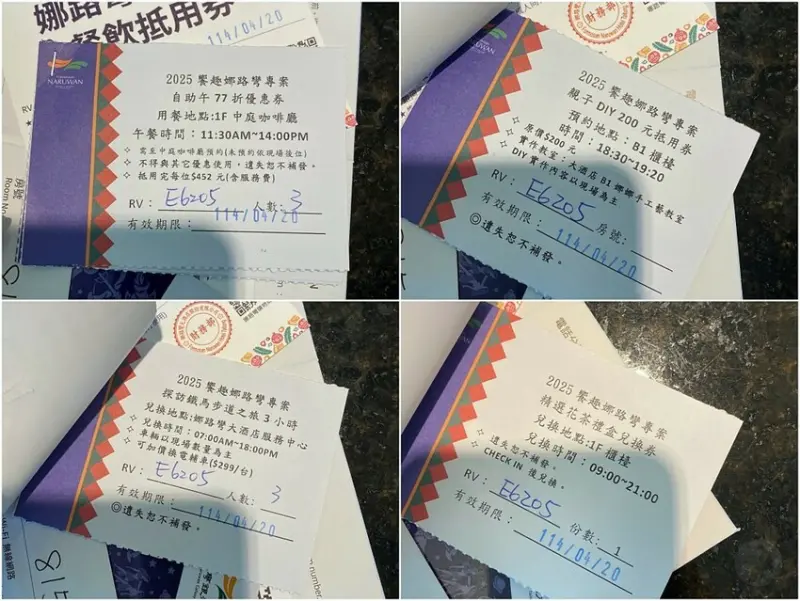 娜路
餐飲抵用券
114/04/20
NARUWAN
RV
2025 饗趣娜路彎專案
自助午 77 折優惠券
用餐地點:1F 中庭咖啡廳
午餐時間:11:30AM~14:00PM
需至中庭咖啡廳預約(未預約依現場後位)
不得與其它優惠使用,遺失恕不補發。
抵用完每位$452 元(含服務費)
RV: E6205 人數: 3
有效期限: 114/04/20
房號
Room No
財務券
NARUWAN
RV
2025 饗趣娜路彎專案
親子 DIY 200 元抵用券
預約地點:B1 櫃檯
時間:18:30~19:20
原價$200 元
實作教室:大酒店 B1 娜娜手工藝教室
DIY 實作內容以現場為主
RV: E6205 房號:
有效期限: 114/04/20
◎遺失恕不補發。
2025 饗趣娜路彎專案
探訪鐵馬步道之旅 3 小時
兌換地點:娜路彎大酒店服務中心
兌換時間:07:00AM~18:00PM
車輛以現場數量為主
可加價換電輔車($299/台)
RV: E6205 人數: 3
有效期限: 114/04/20
◎遺失恕不補發。
Wi-Fi 無線網路
518
m number.
電話分
2025 饗趣娜路彎專案
精選花茶禮盒兌換券
兌換地點:1F 櫃檯
兌換時間:09:00~21:00
遺失恕不補發。
CHECK IN 後兌換。
RV: E6205 份數: 1
有效期限: 114/04/20